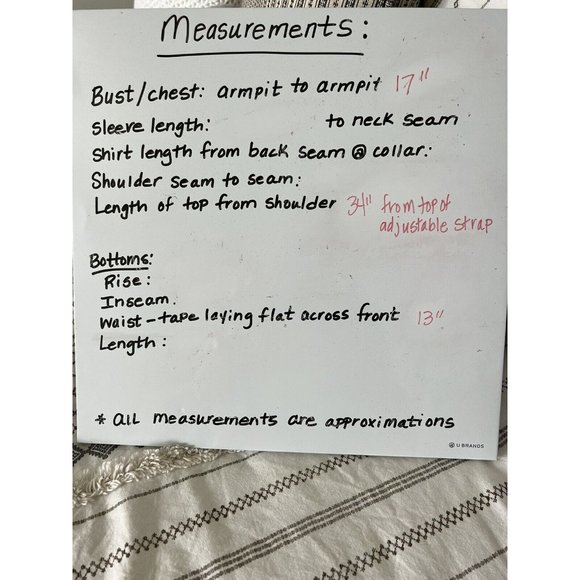 Measurements:
Bust/chest: armpit to armpit 17"
Sleeve length: to neck seam
Shirt length from back seam @ collar:
Shoulder seam to seam:
Length of top from shoulder 34" from top of
adjustable strap
Bottoms:
Rise:
Inseam.
Waist - tape laying flat across front 13"
Length:
* all measurements are approximations
U BRANDS